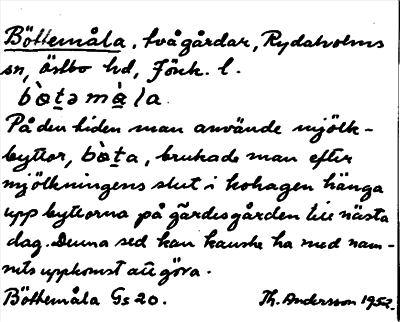 Böttemåla, tvågårdar, Rydaholms
sn, Östbo hd, Jönk. l.
bò̤təmà̤la.
På den tiden man använde mjölk-
byttor, bò̤ta, brukade man efter
mjölkningens slut i kohagen hänga
upp byttorna på gärdesgården till nästa
dag. Denna sed kan kanske ha med nam-
nets uppkomst att göra.
Böttemåla Gs 20. Th. Andersson 1952.